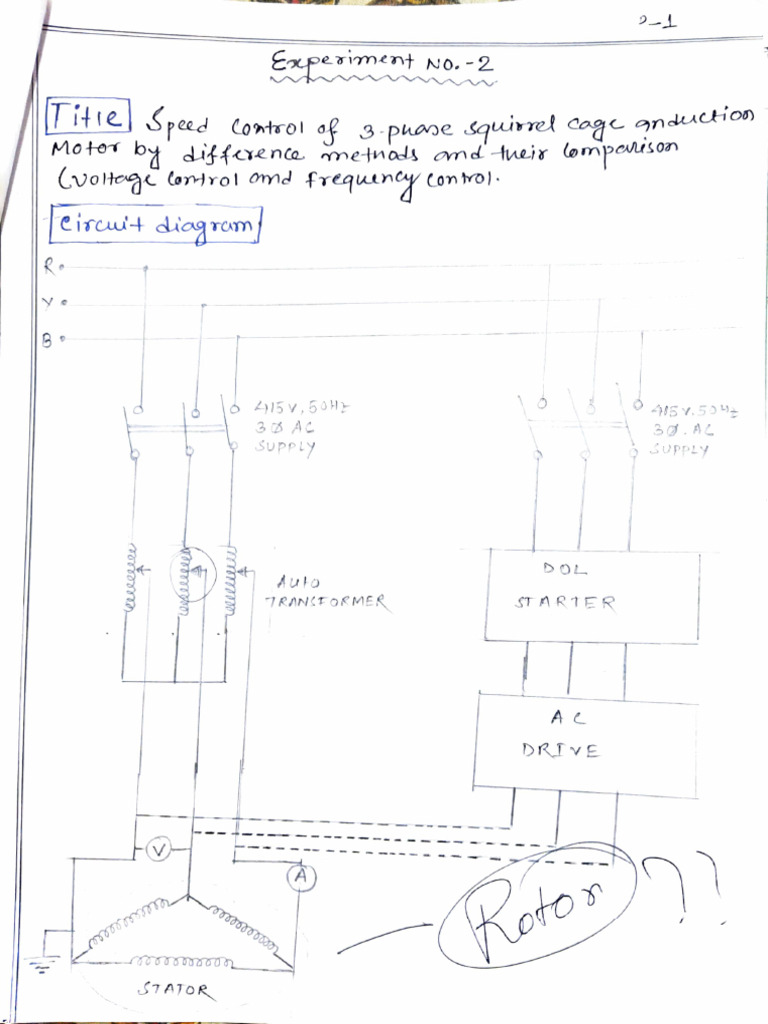 2-1
Experiment NO.-2
Title Speed control of 3-phase squirrel cage induction
Motor by difference methods and their comparison
(voltage control and frequency control.
Circuit diagram
R
Y
B
415V, 50HZ
3Ø AC
SUPPLY
415V. 50HZ
3Ø. AC
SUPPLY
AUTO
TRANSFORMER
DOL
STARTER
AC
DRIVE
V
A
Rotor ??
STATOR